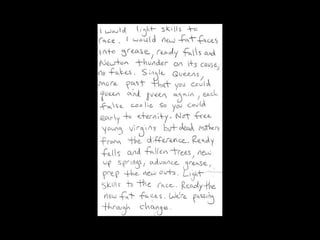 I would light skills to
race. I would new fat faces
into grease, ready falls and
Newton thunder on its cause,
no fakes. Single Queens,
more past that you could
queen and queen again, each
false coolie so you could
early to eternity. Not free
young virgins but dead mothers
from the difference. Ready
fells and fallen trees, new
up springs, advance grease,
prep the new outs. Light
skills to the race. Ready the
new fat faces. We're passing
through changes.